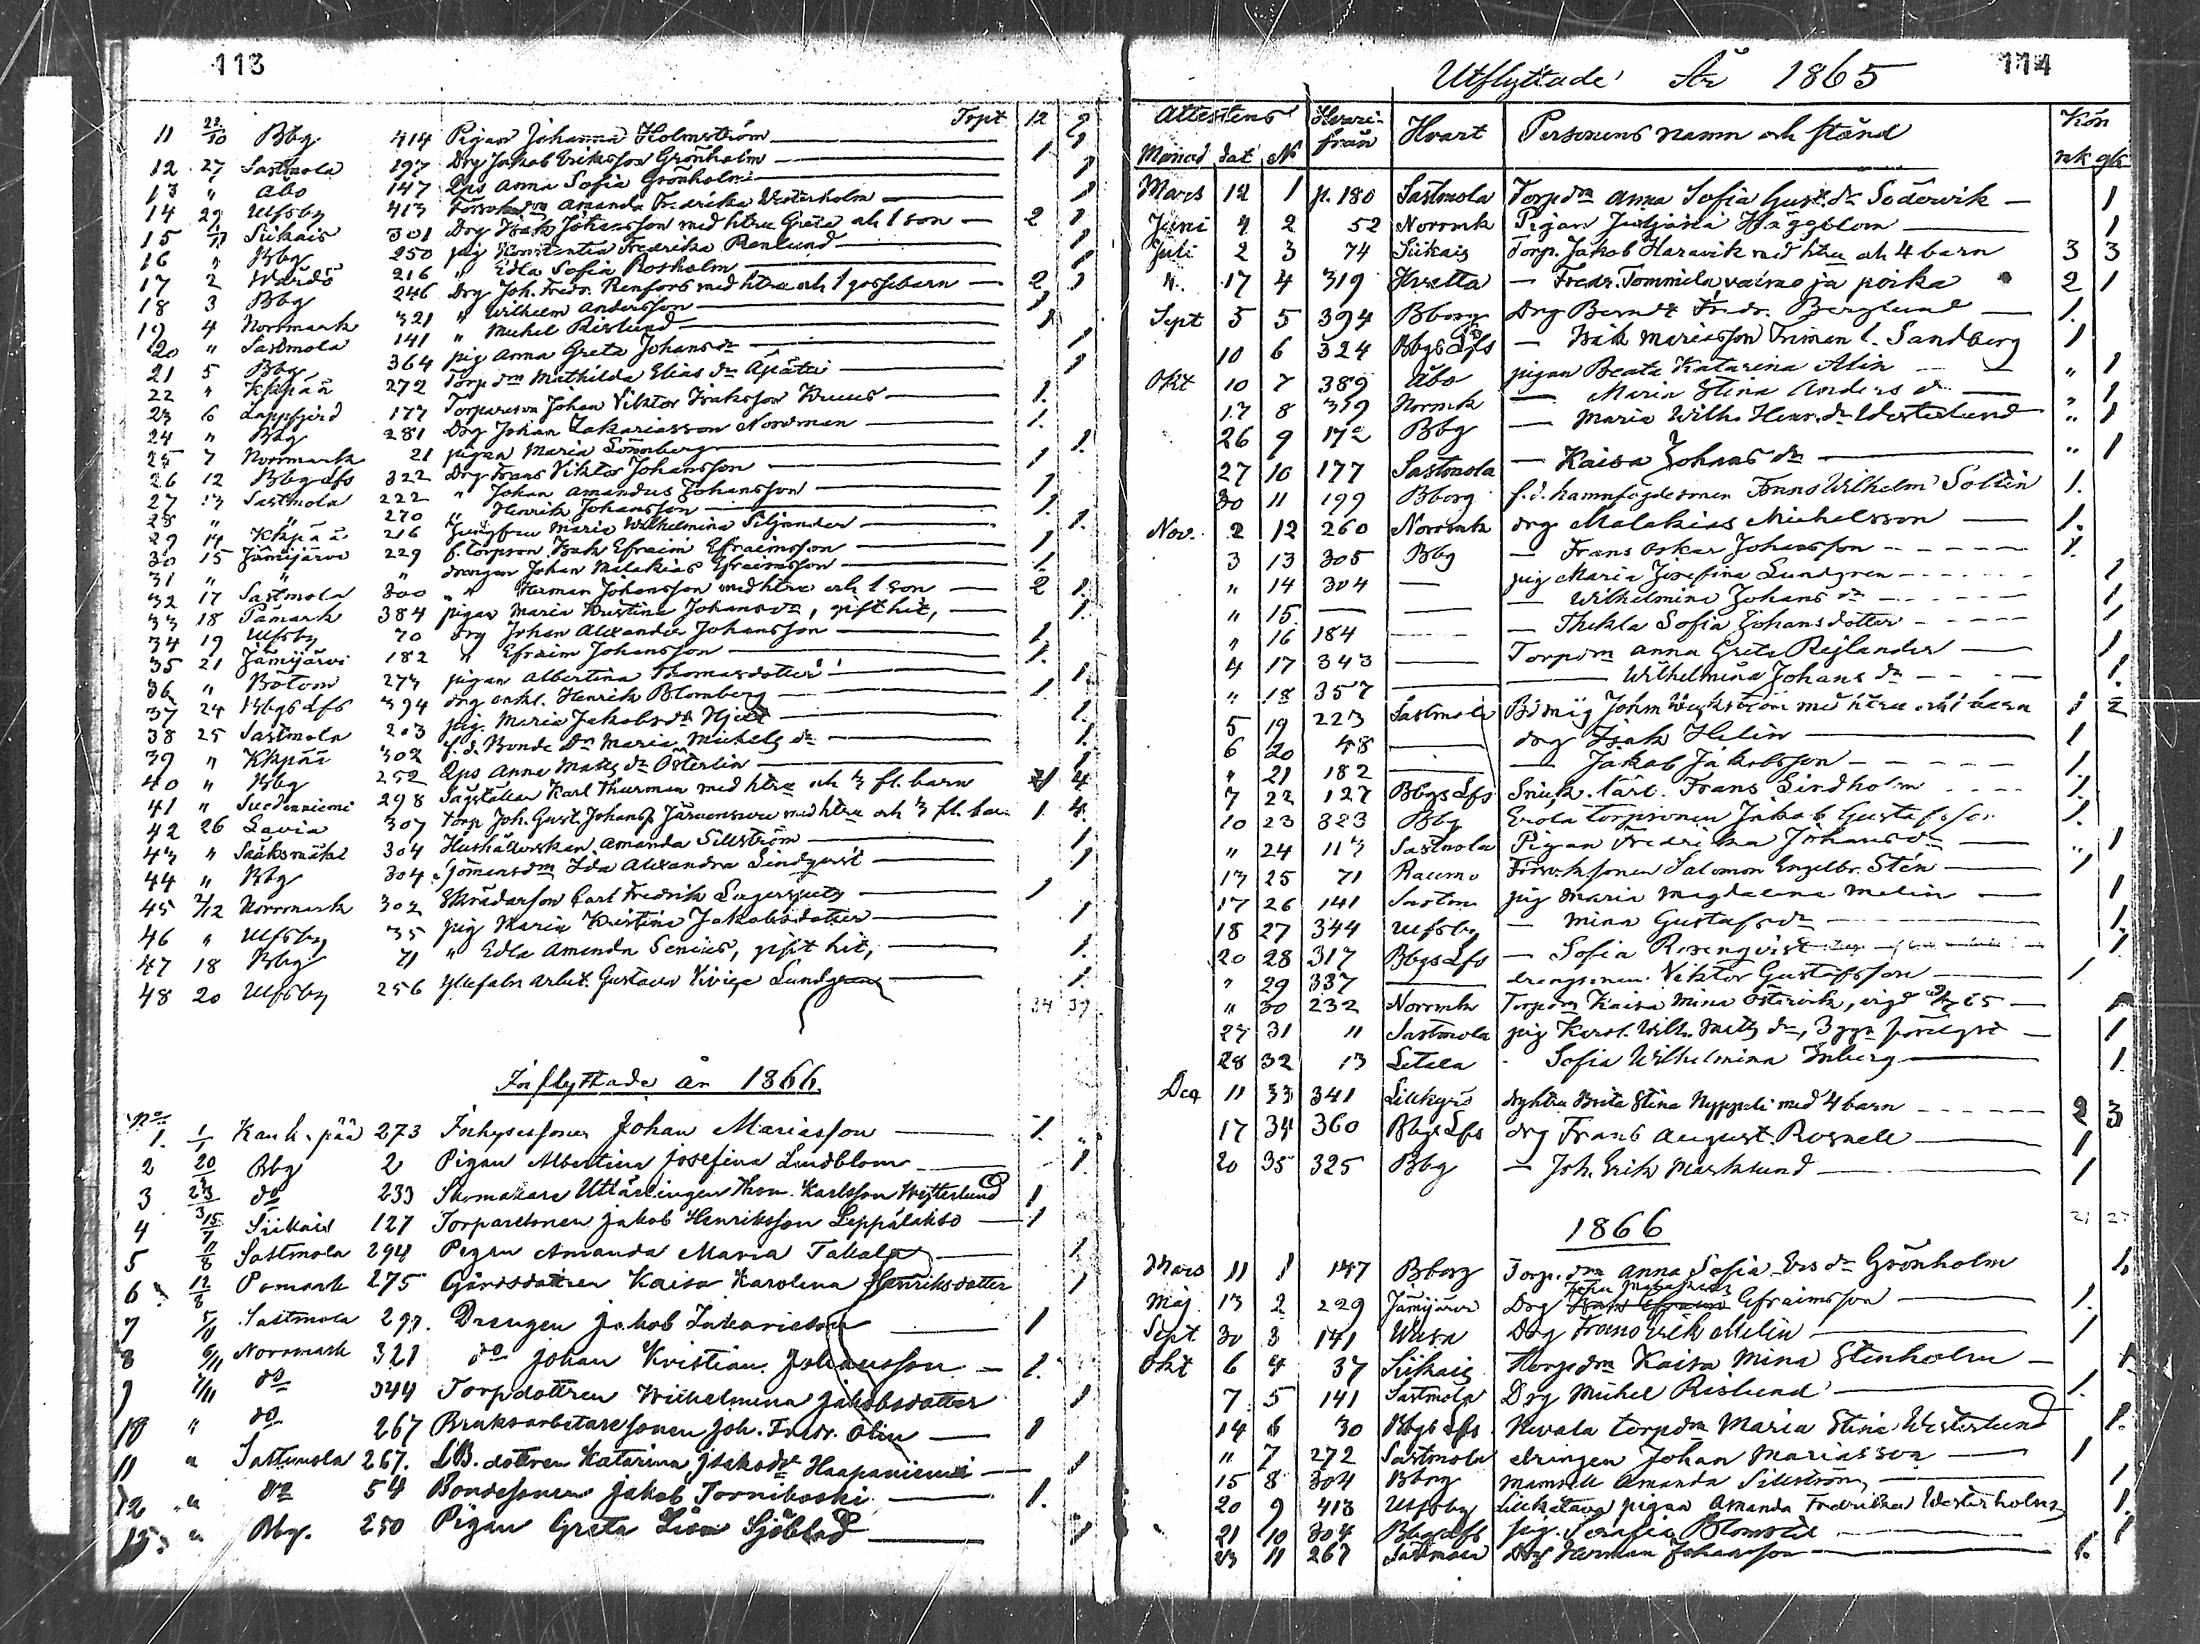 113
Trspt 12 2
11 22/10 Bbg 414 Pigan Johanna Holmström 1
12 27 Sastmola 197 Drg Jakob Eriksson Grönholm 1
13 " Åbo 147 Qps Anna Sofia Grönholm 1
14 29 Ulfsby 413 Amanda Fredrika Westerholm 1
15 Siikais 301 Drg Isak Johansson med htru Greta och 1 son 2 1
16 " Bbg 250 pig Konstantia Fredrika Renlund 1
17 2 Wårdö 216 " Edla Sofia Rosholm 1
18 3 Bbg 246 Drg Joh. Fredr. Renfors med htru och 1 gossebarn 2 1
19 4 Norrmark 321 " Wilhelm Andersson 1
20 " Sastmola 141 " Michel Rislund 1
21 5 Bbg 364 pig Anna Greta Johansdr 1
22 " Kkpää 272 Torpdrn Mathilda Eliasdr Äpätti 1
23 6 Lappfjerd 177 Torpareson Johan Viktor Isaksson 1.
24 " Bbg 281 Drg Johan Zakariasson Nordman 1.
25 7 Norrmark 21 pigan Maria Sönnberg 1
26 12 Bbg Lfs 322 Drg Frans Viktor Johansson 1
27 13 Sastmola 222 " Johan Amandus Johansson 1
28 " " 270 " Henrik Johansson 1.
29 14 Kkpää 216 Jungfru Maria Wilhelmina Siljander 1.
30 15 Jämijärvi 229 f. torpson Isak Efraim Efraimsson 1
31 " " " drengen Johan Malakias Efraimsson 1.
32 17 Sastmola 300 " Herman Johansson med htru och 1 son 2 1.
33 18 Påmark 384 pigan Maria Kristina Johansdr, gift hit, 1.
34 19 Ulfsby 70 drg Johan Alexander Johansson 1.
35 21 Jämijärvi 182 " Efraim Johansson 1.
36 " Bötom 273 pigan Albertina Thomasdotter 1
37 24 Bbgs Lfs 394 drg enkl. Henrik Blomberg 1.
38 25 Sastmola 203 pig. Maria Jakobsdr Hjelt 1.
39 " Kkpää 302 f.d. Bonde Dr Maria Michelsdr 1.
40 " Bbg 252 Qps Anna Matsdr Österlin 1
41 " Suodenniemi 298 Sågställar Karl Thurman med htru och 3 fl. barn 1 4
42 26 Lavia 307 Torp Joh. Gust. Johanss. med htru och 3 fl. barn 1 4.
43 " Sääksmäki 304 Hushållerskan Amanda Sillström 1
44 " Bbg 304 Sjömansdrn Ida Alexandra Lindqvist 1
45 2/12 Norrmark 302 Skräddarson Carl Fredrik 1
46 " Ulfsby 35 pig Maria Kristina Jakobsdotter 1
47 18 Bbg 71 " Edla Amanda Senius, gift hit, 1.
48 20 Ulfsby 256 arbet. Gustava Lundgren 1.
34 39
Inflyttade år 1866.
No
1. 1/1 Kankaanpää 273 Inhysessonen Johan Mariasson 1.
2 20 Bbg 2 Pigan Albertina Josefina Lindblom 1.
3 23/3 do 233 Skomakare Utlärlingen Thom. Karlsson Westerlund 1
4 15/7 Siikais 127 Torparesonen Jakob Henriksson Leppälakso 1
5 11/8 Sastmola 294 Pigan Amanda Maria Takala 1.
6 12/8 Pomark 275 Gårdsdottren Kaisa Karolina Henriksdotter 1
7 Sastmola 297. Drengen Jakob Sakariasson 1
8 6/11 Norrmark 321 do Johan Kristian Johansson 1.
9 7/11 do 344 Torpdottren Wilhelmina Jakobsdotter 1
10 " do 267 Bruksarbetaressonen Joh. Fredr. Olin 1
11 " Sastmola 267. LB. dottren Katarina Isaksdr Haapaniemi 1
12 " do 54 Bondesonen Jakob Torniboski 1.
13 " Bbg. 250 Pigan Greta Lisa Sjöblad 1
114
Utflyttade År 1865
Attestens Hvarifrån Hvart Personens namn och stånd Kön
Månad dat No mk qk
Mars 12 1 p. 180 Sastmola Torpdrn Anna Sofia Gust.dr Södervik 1
Juni 4 2 52 Norrmk Pigan Häggblom 1
Juli 2 3 74 Siikais Torp. Jakob Haravik med htru och 4 barn 3 3
". 17 4 319 Hvetta Fredr. Tommila, vaimo ja poika 2 1
Sept 5 5 394 Bborg Drg Berndt Fredr. Berglund 1.
10 6 324 Bbgs Lfs Isak Mariasson Friman l. Sandberg 1
Okt 10 7 389 Åbo pigan Beata Katarina Alin " 1
17 8 319 Norrmk Maria Stina Andersdr " 1
26 9 172 Bbg Maria Wilh. Henr.dr Westerlund " 1
27 10 177 Sastmola Kaisa Johansdr " 1
30 11 199 Bborg f.d. hamnfogdesonen Frans Wilhelm Solin 1.
Nov. 2 12 260 Norrmk drg Malakias Michelsson 1.
3 13 305 Bbg Frans Oskar Johansson 1.
" 14 304 pig Maria Josefina Lundgren 1
" 15 Wilhelmina Johansdr 1
" 16 184 Thekla Sofia Johansdotter 1
4 17 343 Torpdrn Anna Greta Rejlander 1
" 18 357 Wilhelmina Johansdr 1.
5 19 223 Sastmola John med htru och 1 barn 1 2
6 20 48 drg Isak Helin 1
" 21 182 Jakob Jakobsson 1.
7 22 127 Bbgs Lfs Snick. lärl. Frans Lindholm 1.
10 23 323 Bbg torpsonen Jakob Gustafsson 1.
" 24 113 Sastmola Pigan Fredrika Johansdr " 1
13 25 71 Raumo Salomon Engelbr. Stén 1
17 26 141 Sastm pig Maria Magdalena Malin 1
18 27 344 Ulfsby Mina Gustafsdr 1.
20 28 317 Bbgs Lfs Sofia Rosenqvist 1
" 29 337 drengsonen Viktor Gustafsson 1.
" 30 232 Norrmk Torpdrn Kaisa Mina Östervik, vigd 65 1
27 31 " Sastmola pig Karol. Wilh. Matsdr, 3 ggr 1
28 32 13 Letala Sofia Wilhelmina Enberg 1.
Dec 11 33 341 Lillkyro Brita Stina Nyppeli med 4 barn 2 3
17 34 360 Bbgs Lfs drg Frans August Rosnell 1
20 35 325 Bbg Joh. Erik Marklund 1
1866
Mars 11 1 147 Bborg Torp. drn Anna Sofia Grönholm 1.
Maj 13 2 229 Jämijärvi Drg Johan Malakias Efraimsson 1.
Sept 30 3 141 Wasa Drg Frans Erik Melin 1
Okt 6 4 37 Siikais Torpdrn Kaisa Mina Stenholm 1
7 5 141 Sastmola Drg Michel Rislund 1.
14 6 30 Bbgs Lfs torpdrn Maria Stina Westerlund 1.
" 7 272 Sastmola drengen Johan Mariasson 1
15 8 304 Bborg Mamsell Amanda Sillström 1
20 9 413 Ulfsby pigan Amanda Fredrika Westerholm 1.
21 10 304 Bbgs Lfs pig. Serafia Blomstedt 1
23 11 267 Sastmola Drg Herman Johansson 1.